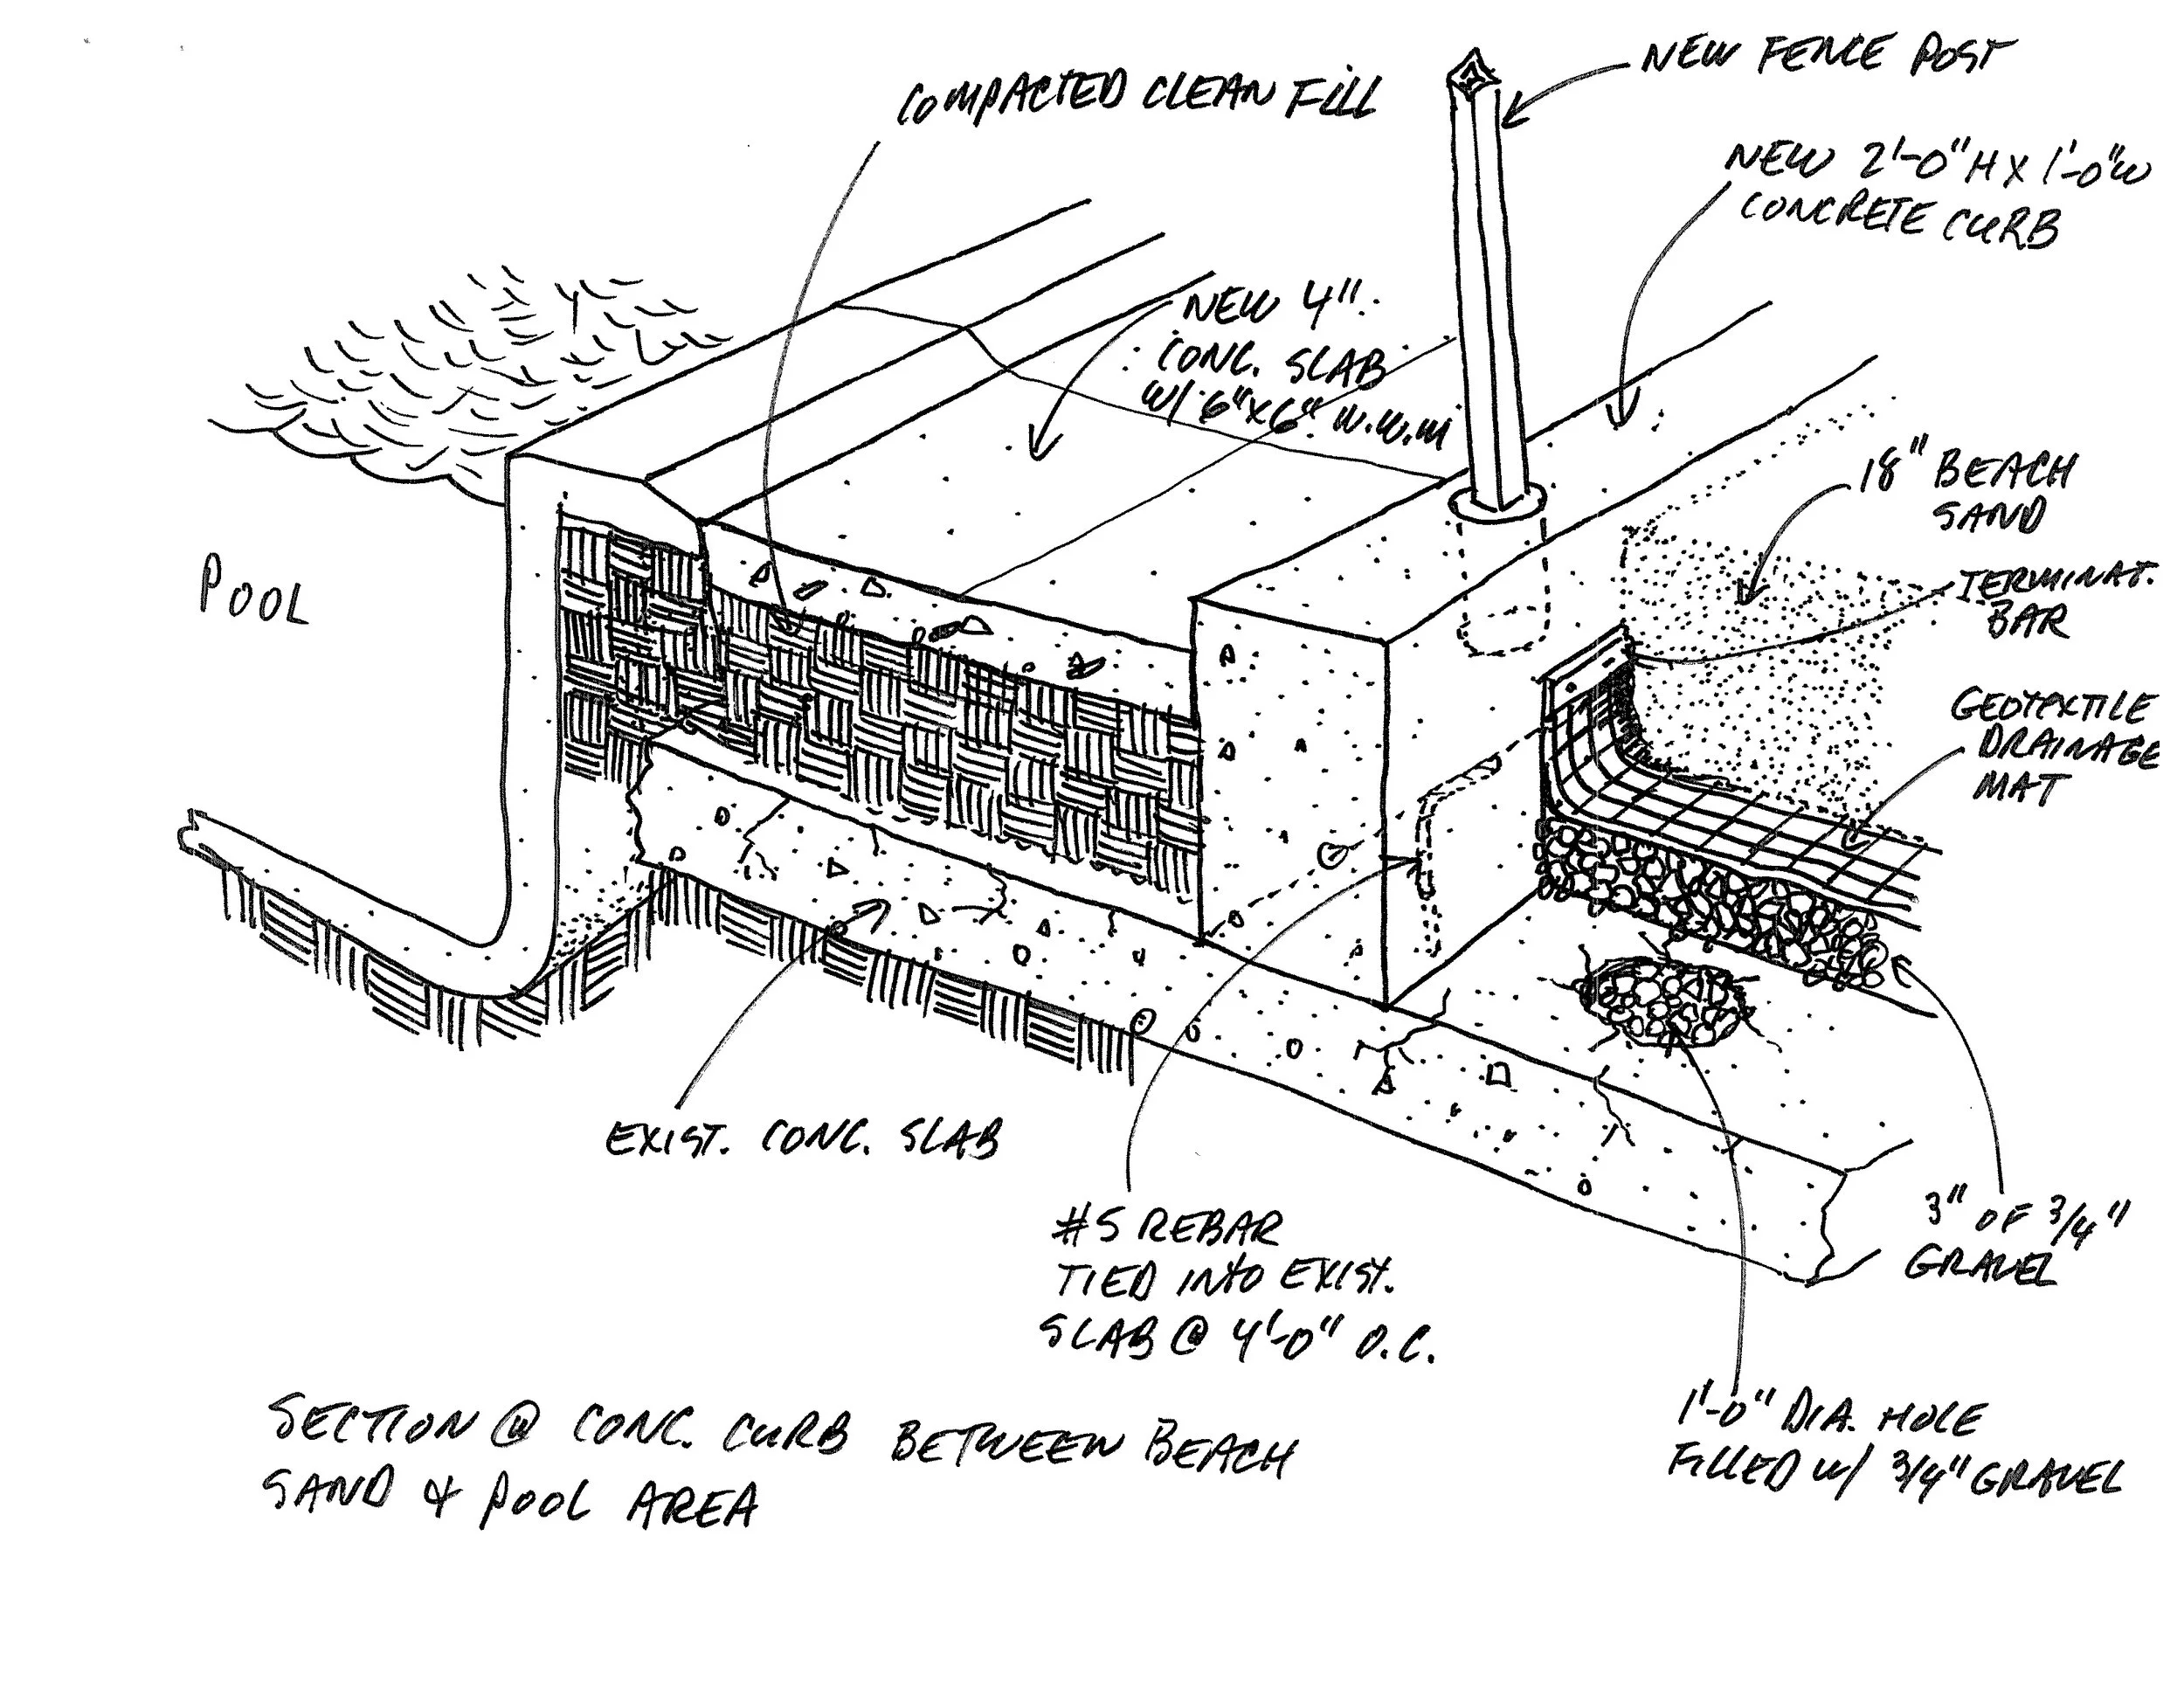 NEW FENCE POST
COMPACTED CLEAN FILL
NEW 2'-0"H X 1'-0"W
CONCRETE CURB
NEW 4"
CONC. SLAB
W/ 6"X6" W.W.M
18" BEACH
SAND
TERMINAT.
BAR
POOL
GEOTEXTILE
DRAINAGE
MAT
EXIST. CONC. SLAB
#5 REBAR
TIED INTO EXIST.
SLAB @ 4'-0" O.C.
3" OF 3/4"
GRAVEL
1'-0" DIA. HOLE
FILLED W/ 3/4" GRAVEL
SECTION @ CONC. CURB BETWEEN BEACH
SAND & POOL AREA